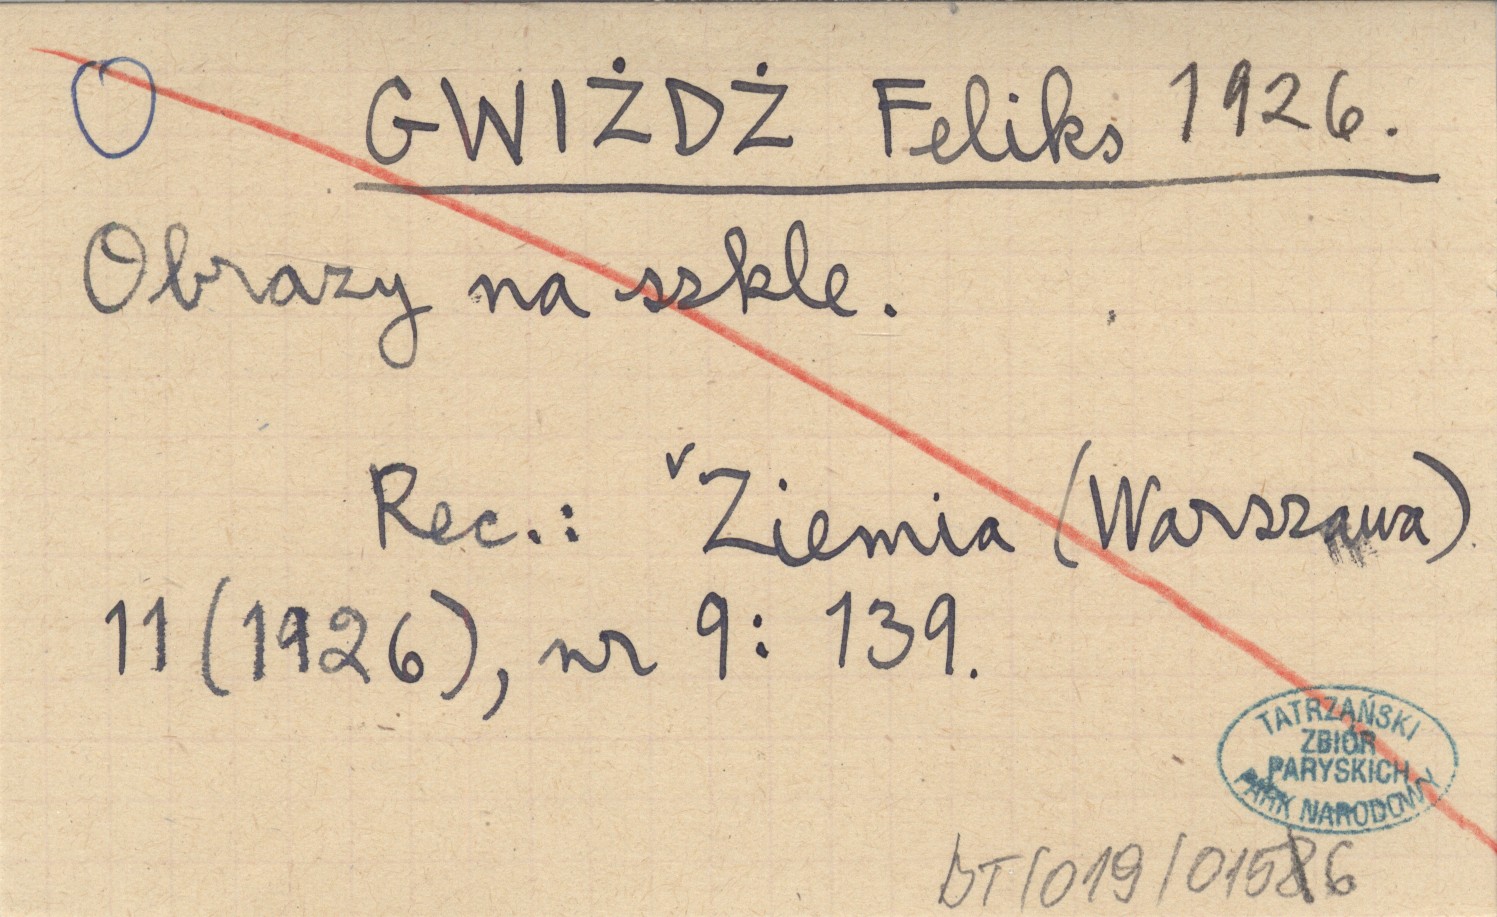 O GWIŻDŻ Feliks 1926.
Obrazy na szkle.
Rec.: Ziemia (Warszawa)
11 (1926), nr 9: 139.
TATRZAŃSKI
ZBIÓR
PARYSKICH
PARK NARODOWY
DT/019/0156